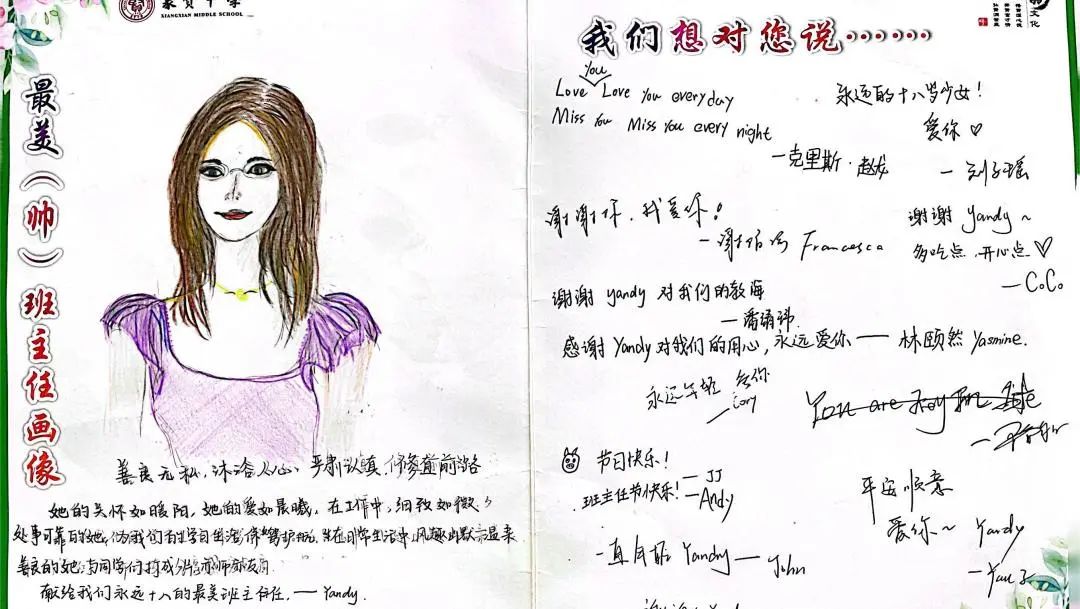 XIANGXIAN MIDDLE SCHOOL
最美（帅）班主任画像
善良无私，沐浴人心，严肃认真，修剪前路
她的关怀如暖阳，她的爱如晨曦，在工作中，细致如微，
处事可靠的她，为我们的学习生活保驾护航，在日常生活中，风趣幽默 温柔
善良的她，与同学们打成一片，亦师亦友
献给我们永远十八的最美班主任，— Yandy.
文化
我们想对您说……
you
Love Love You everyday
Miss You Miss You every night
—克里斯·赵龙
永远的十八岁少女！
爱你♡
谢谢你，我爱你！
— Francesca
谢谢 Yandy ~
多吃点，开心点♡
— CoCo
谢谢 yandy 对我们的教诲
感谢 Yandy 对我们的用心，永远爱你 — 林颐然 Yasmine.
永远年轻 爱你
— Cory
You are my
节日快乐！
— JJ
班主任节快乐！— Andy
平安顺意
爱你~ Yandy
Yandy — John